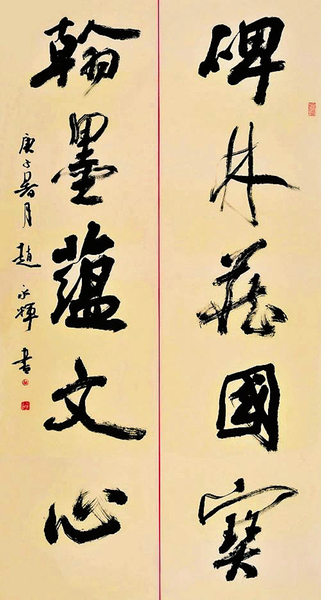 碑林藏國寶
翰墨蘊文心
庚子暑月趙永輝書